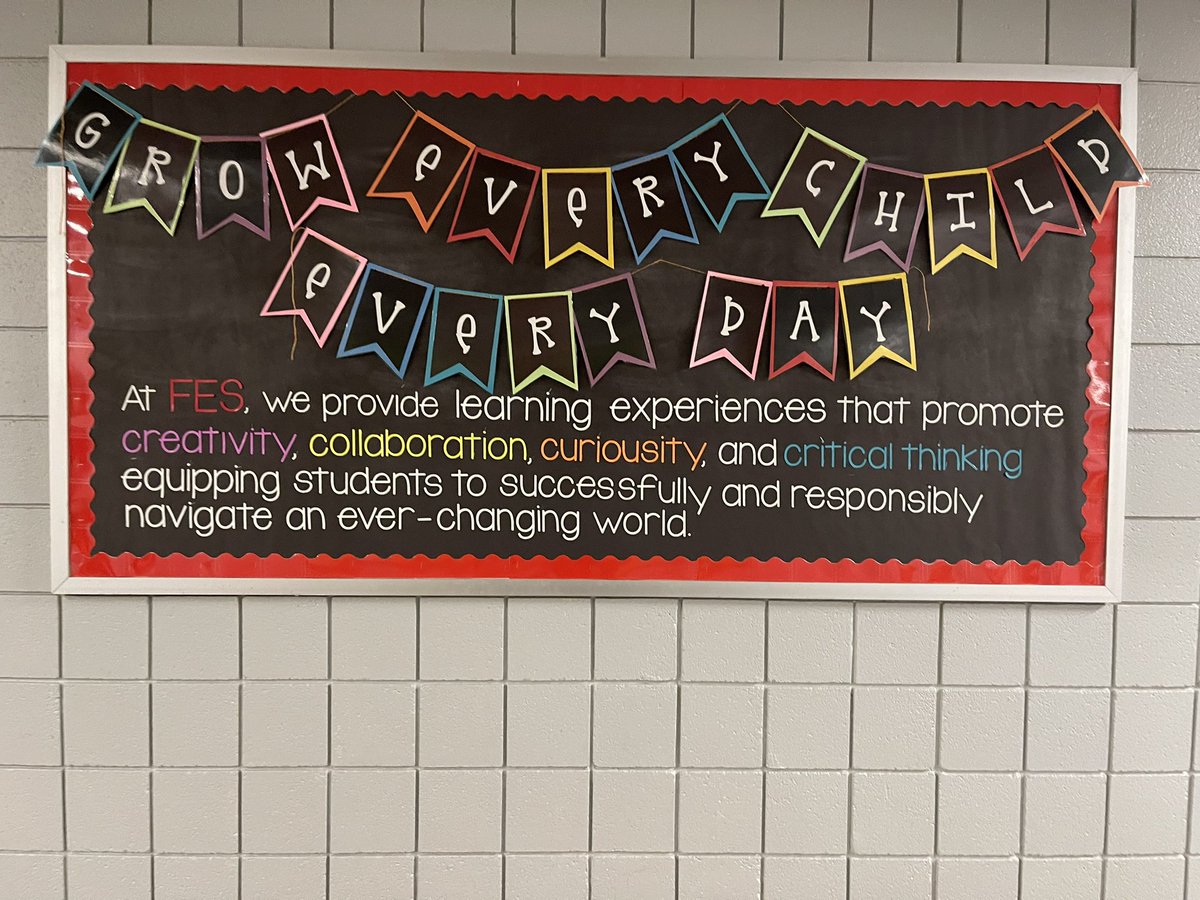 GROW eVeRY CHILD
eVeRY DAY
At FES, we provide learning experiences that promote
creativity, collaboration, curiousity, and critical thinking
equipping students to successfully and responsibly
navigate an ever-changing world.